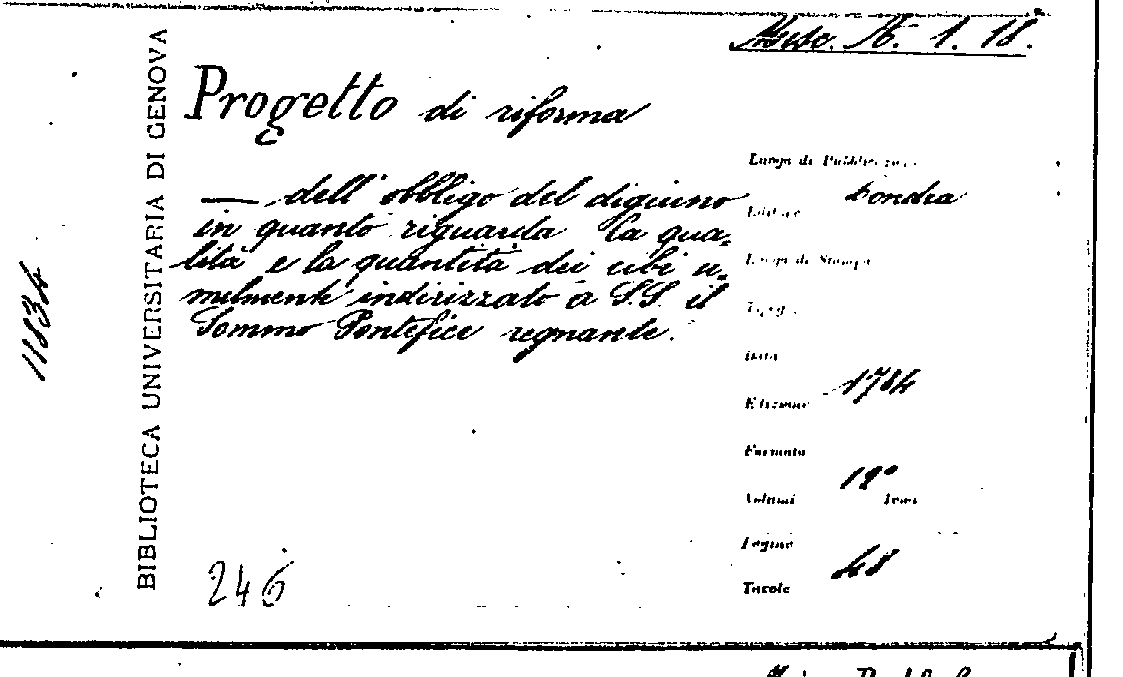 Misc. A. 1. 18.
Progetto di riforma
— dell' obbligo del digiuno
in quanto riguarda la qua-
lità e la quantità dei cibi u-
milmente indirizzato a S.S. il
Sommo Pontefice regnante.
BIBLIOTECA UNIVERSITARIA DI GENOVA
11834
246
Luogo di Pubblicazione
Londra
Editore
Luogo di Stampa
Tipog.
Data
1784
Edizione
Formato
12°
Volumi
Pagine
48
Tavole